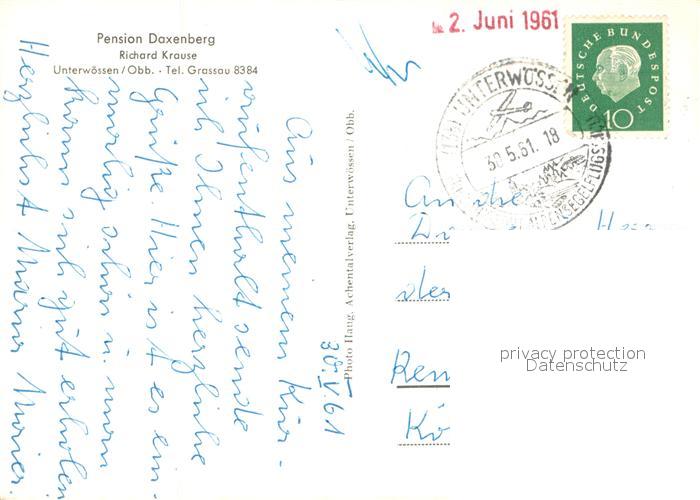 Pension Daxenberg
Richard Krause
Unterwössen/Obb. · Tel. Grassau 8384
2. Juni 1961
DEUTSCHE BUNDESPOST
10
UNTERWÖSSEN
30.5.61. 18
ALPENSEGELFLUGS
30.V.61
Aus meinem Kur-
aufenthalt sende
ich Ihnen herzliche
Grüße. Hier ist es ein-
malig schön u. man
kann sich gut erholen.
Herzlichst Maier
Photo Haug, Achentalverlag, Unterwössen/Obb.
An die
der
Ren
Kö
privacy protection
Datenschutz